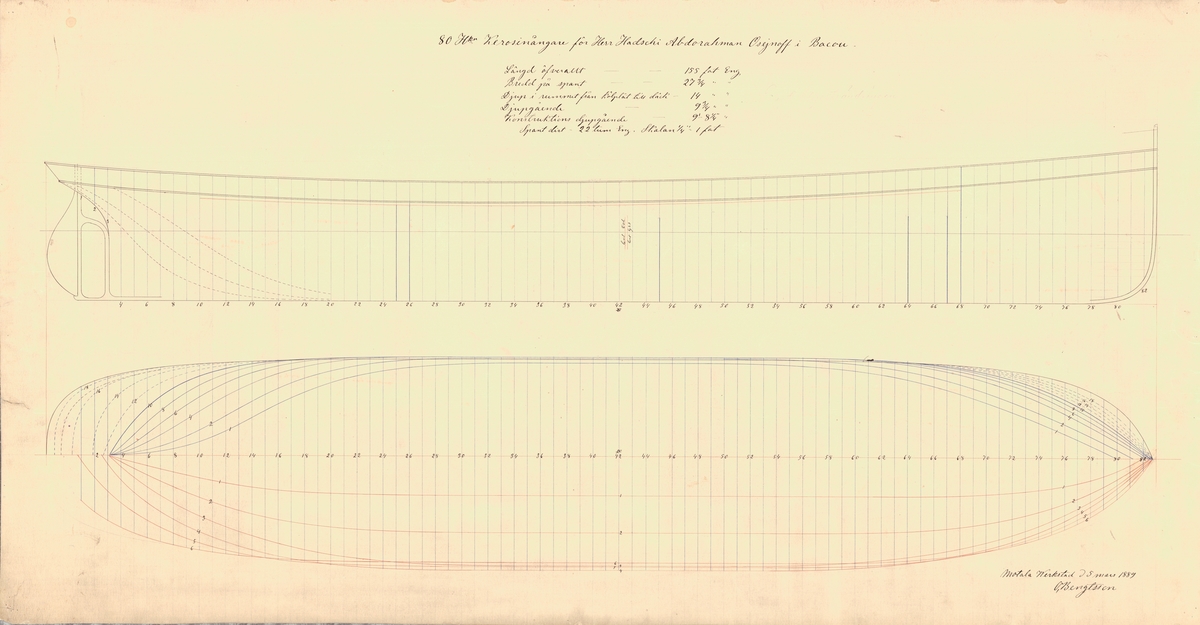 80 Hkr Kerosinångare för Herr Hadschi Abdorahman Osynoff i Bacou.
Längd öfverallt 155 fot Eng
Bredd på spant 27 3/4 " "
Djup i rummet från kölplåt till däck 14 " "
Djupgående 9 3/4 " "
Konstruktions djupgående 9' 8 3/4" "
Spant dist 22 tum Eng. Skalan 1/4" = 1 fot
1 2 3
4 6 8 10 12 14 16 18 20 22 24 26 28 30 32 34 36 38 40 42 44 46 48 50 52 54 56 58 60 62 64 66 68 70 72 74 76 78 80 82
2 4 6 8 10 12 14 16 18 20 22 24 26 28 30 32 34 36 38 40 42 44 46 48 50 52 54 56 58 60 62 64 66 68 70 72 74 76 78 80
1
2
3
4
5
6
Motala Verkstad d 5 mars 1889
C Bengtsson